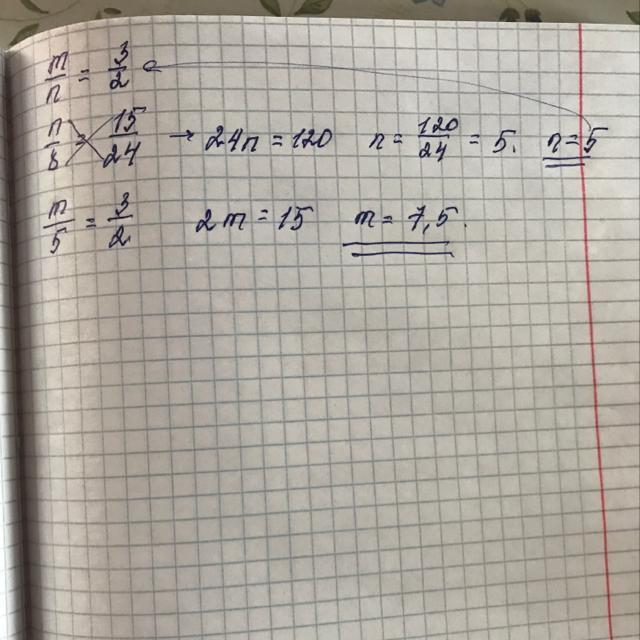 m/n = 3/2
n/8 = 15/24 → 24n = 120 n = 120/24 = 5. n = 5
m/5 = 3/2 2m = 15 m = 7,5.